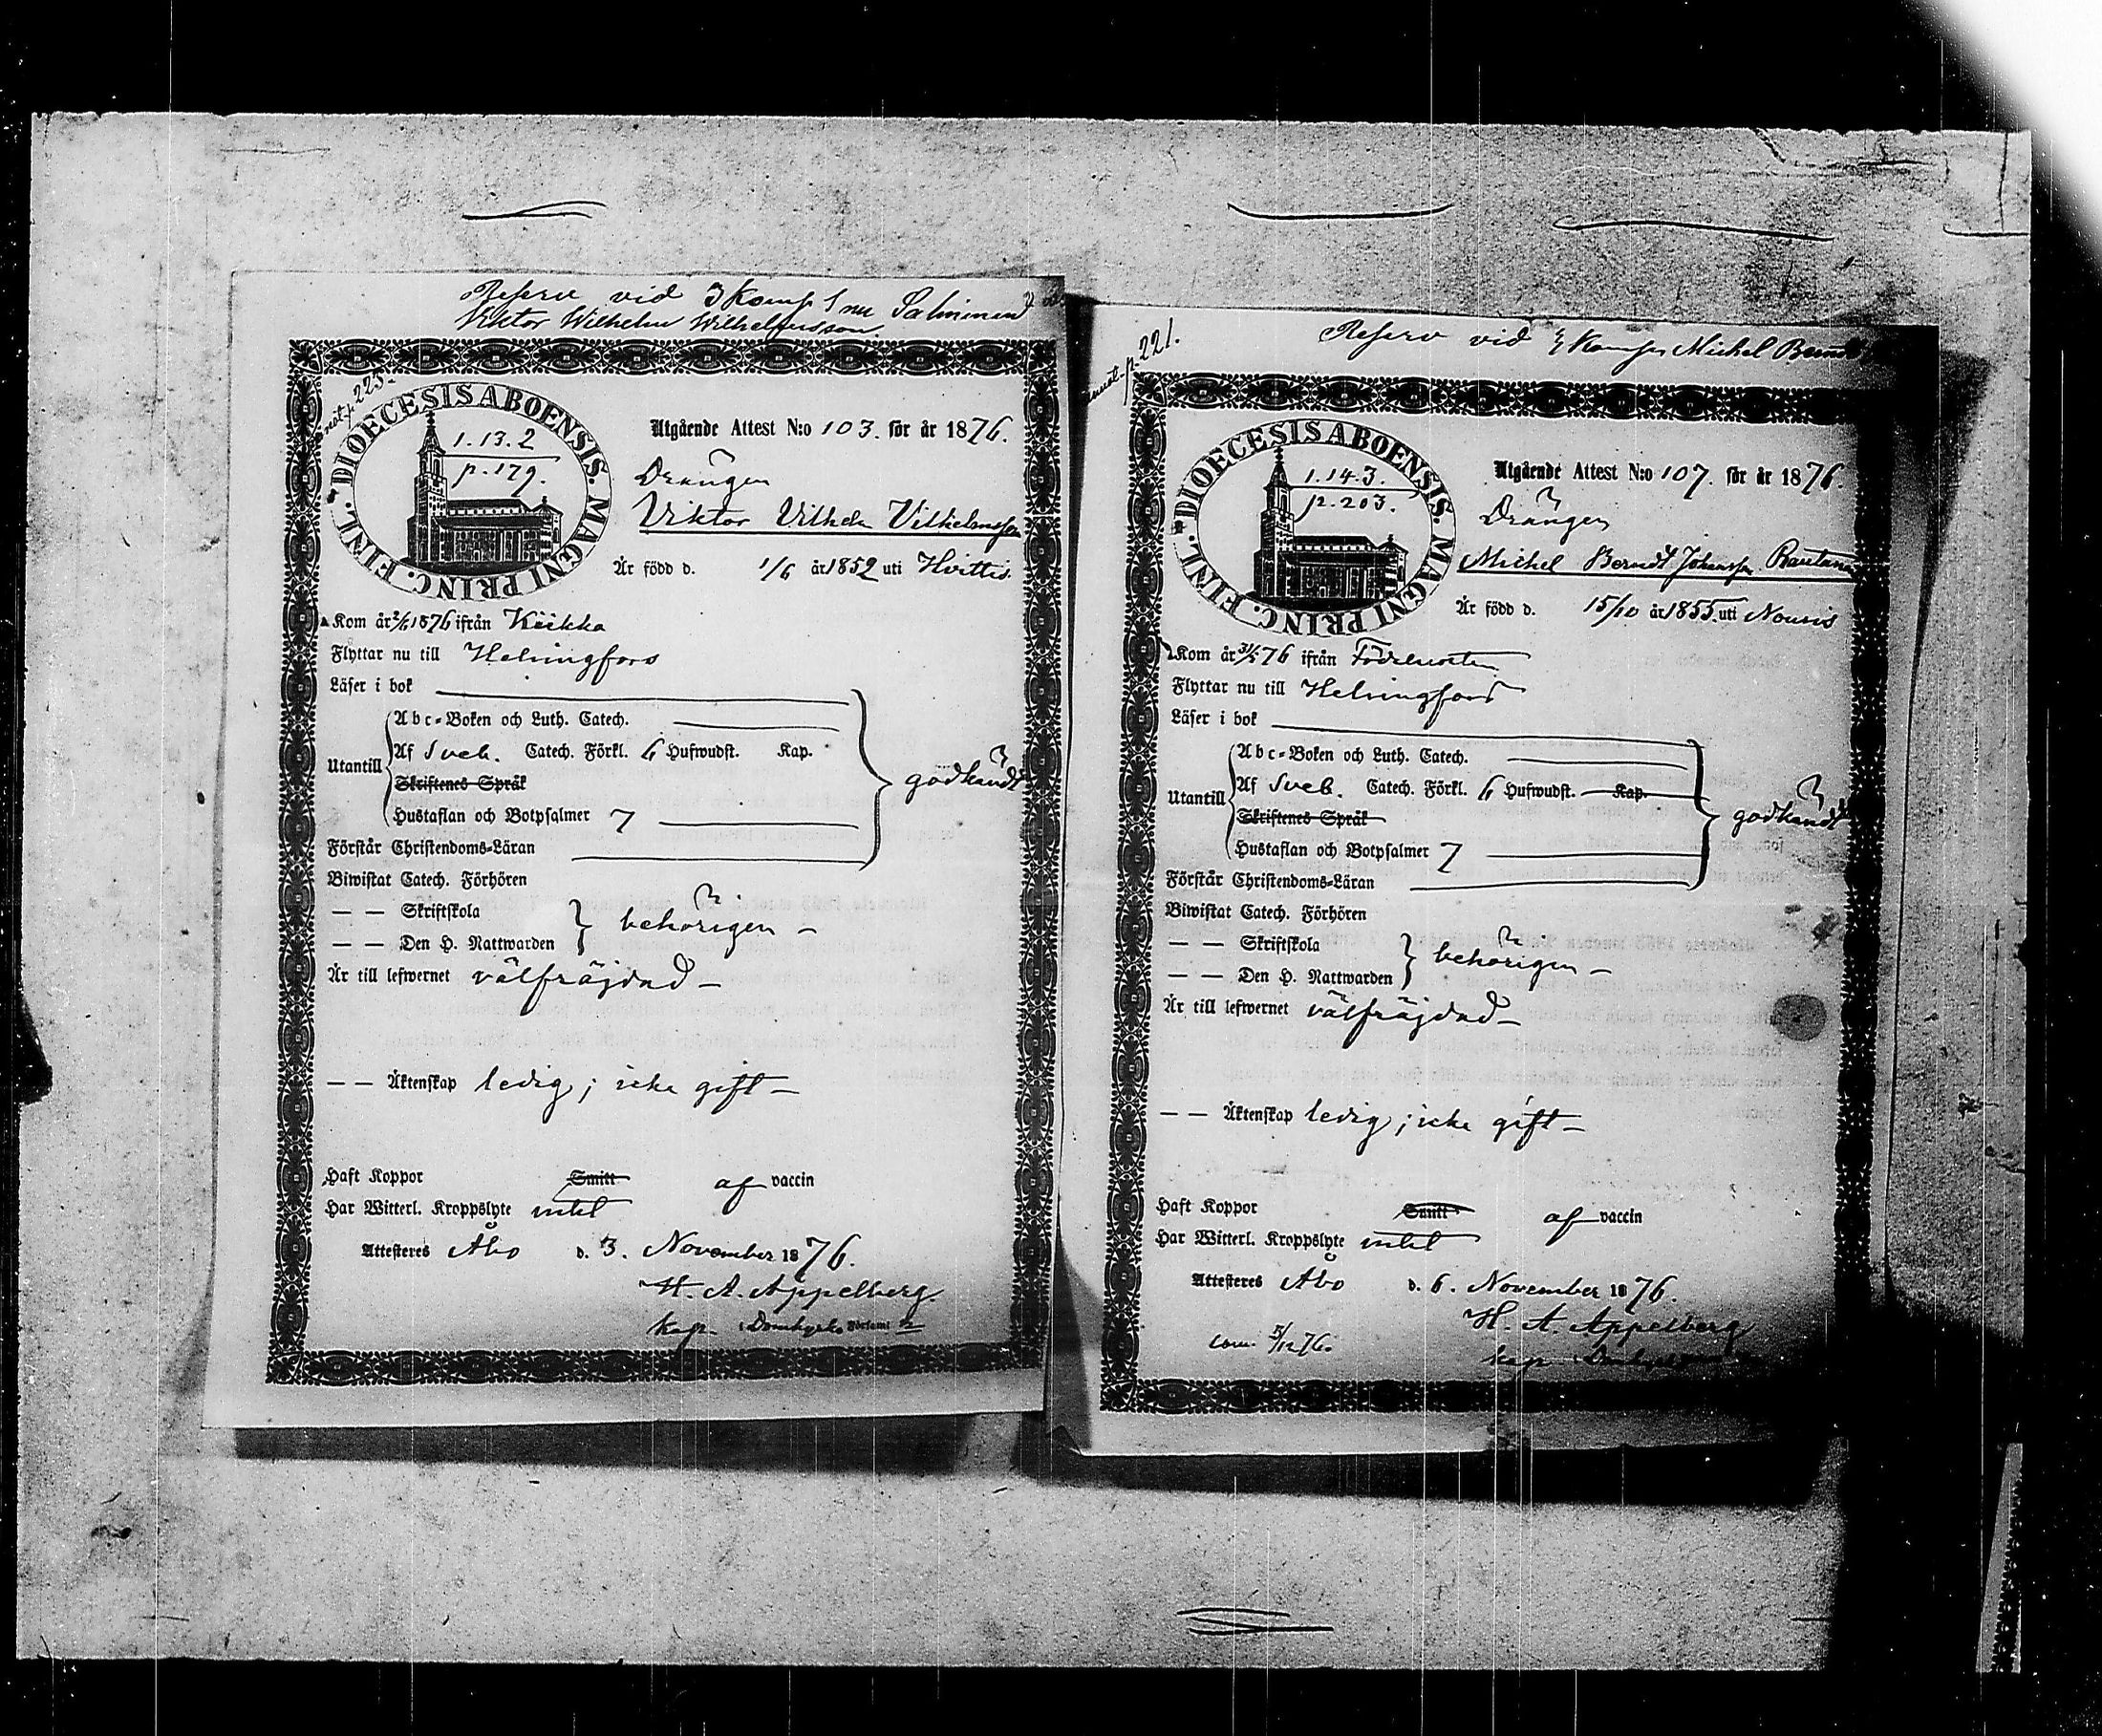 Reserv vid 3 Komp nu Salminen
Viktor Wilhelm Wilhelmsson
p. 223.
DIOECESIS ABOENSIS. MAGNI PRINC. FINL.
1.13.2
p. 179.
Utgående Attest N:o 103. för år 1876.
Drängen
Viktor Vilhelm Vilhelmsson
Är född d. 1/6 år 1852 uti Hvittis.
Kom år 2/6 1876 ifrån Kiikka
Flyttar nu till Helsingfors
Läser i bok
Abc-Boken och Luth. Catech.
Utantill
Af Sveb. Catech. Förkl. 6 Hufwudst. Kap.
godkändt
Skriftenes Språk
Hustaflan och Botpsalmer 7
Förstår Christendoms-Läran
Biwistat Catech. Förhören
— — Skriftskola
behörigen —
— — Den H. Nattwarden
Är till lefwernet välfräjdad —
— — Äktenskap ledig; icke gift —
Haft Koppor Smitt af vaccin
Har Witterl. Kroppslyte intet
Attesteres Åbo d. 3. November 1876.
H. A. Appelberg.
kap. i Domkyrko Församl
p. 221.
Reserv vid Komp Michel Berndt
DIOECESIS ABOENSIS. MAGNI PRINC. FINL.
1.14.3.
p. 203.
Utgående Attest N:o 107. för år 1876.
Drängen
Michel Berndt Johansson Rautanen
Är född d. 15/10 år 1855. uti Nousis
Kom år 31/5 76 ifrån Födelseorten
Flyttar nu till Helsingfors
Läser i bok
Abc-Boken och Luth. Catech.
Utantill
Af Sveb. Catech. Förkl. 6 Hufwudst. Kap.
godkändt
Skriftenes Språk
Hustaflan och Botpsalmer 7
Förstår Christendoms-Läran
Biwistat Catech. Förhören
— — Skriftskola
behörigen —
— — Den H. Nattwarden
Är till lefwernet välfräjdad —
— — Äktenskap ledig; icke gift —
Haft Koppor Smitt af vaccin
Har Witterl. Kroppslyte intet
Attesteres Åbo d. 6. November 1876.
H. A. Appelberg
kap.
5/12 76.